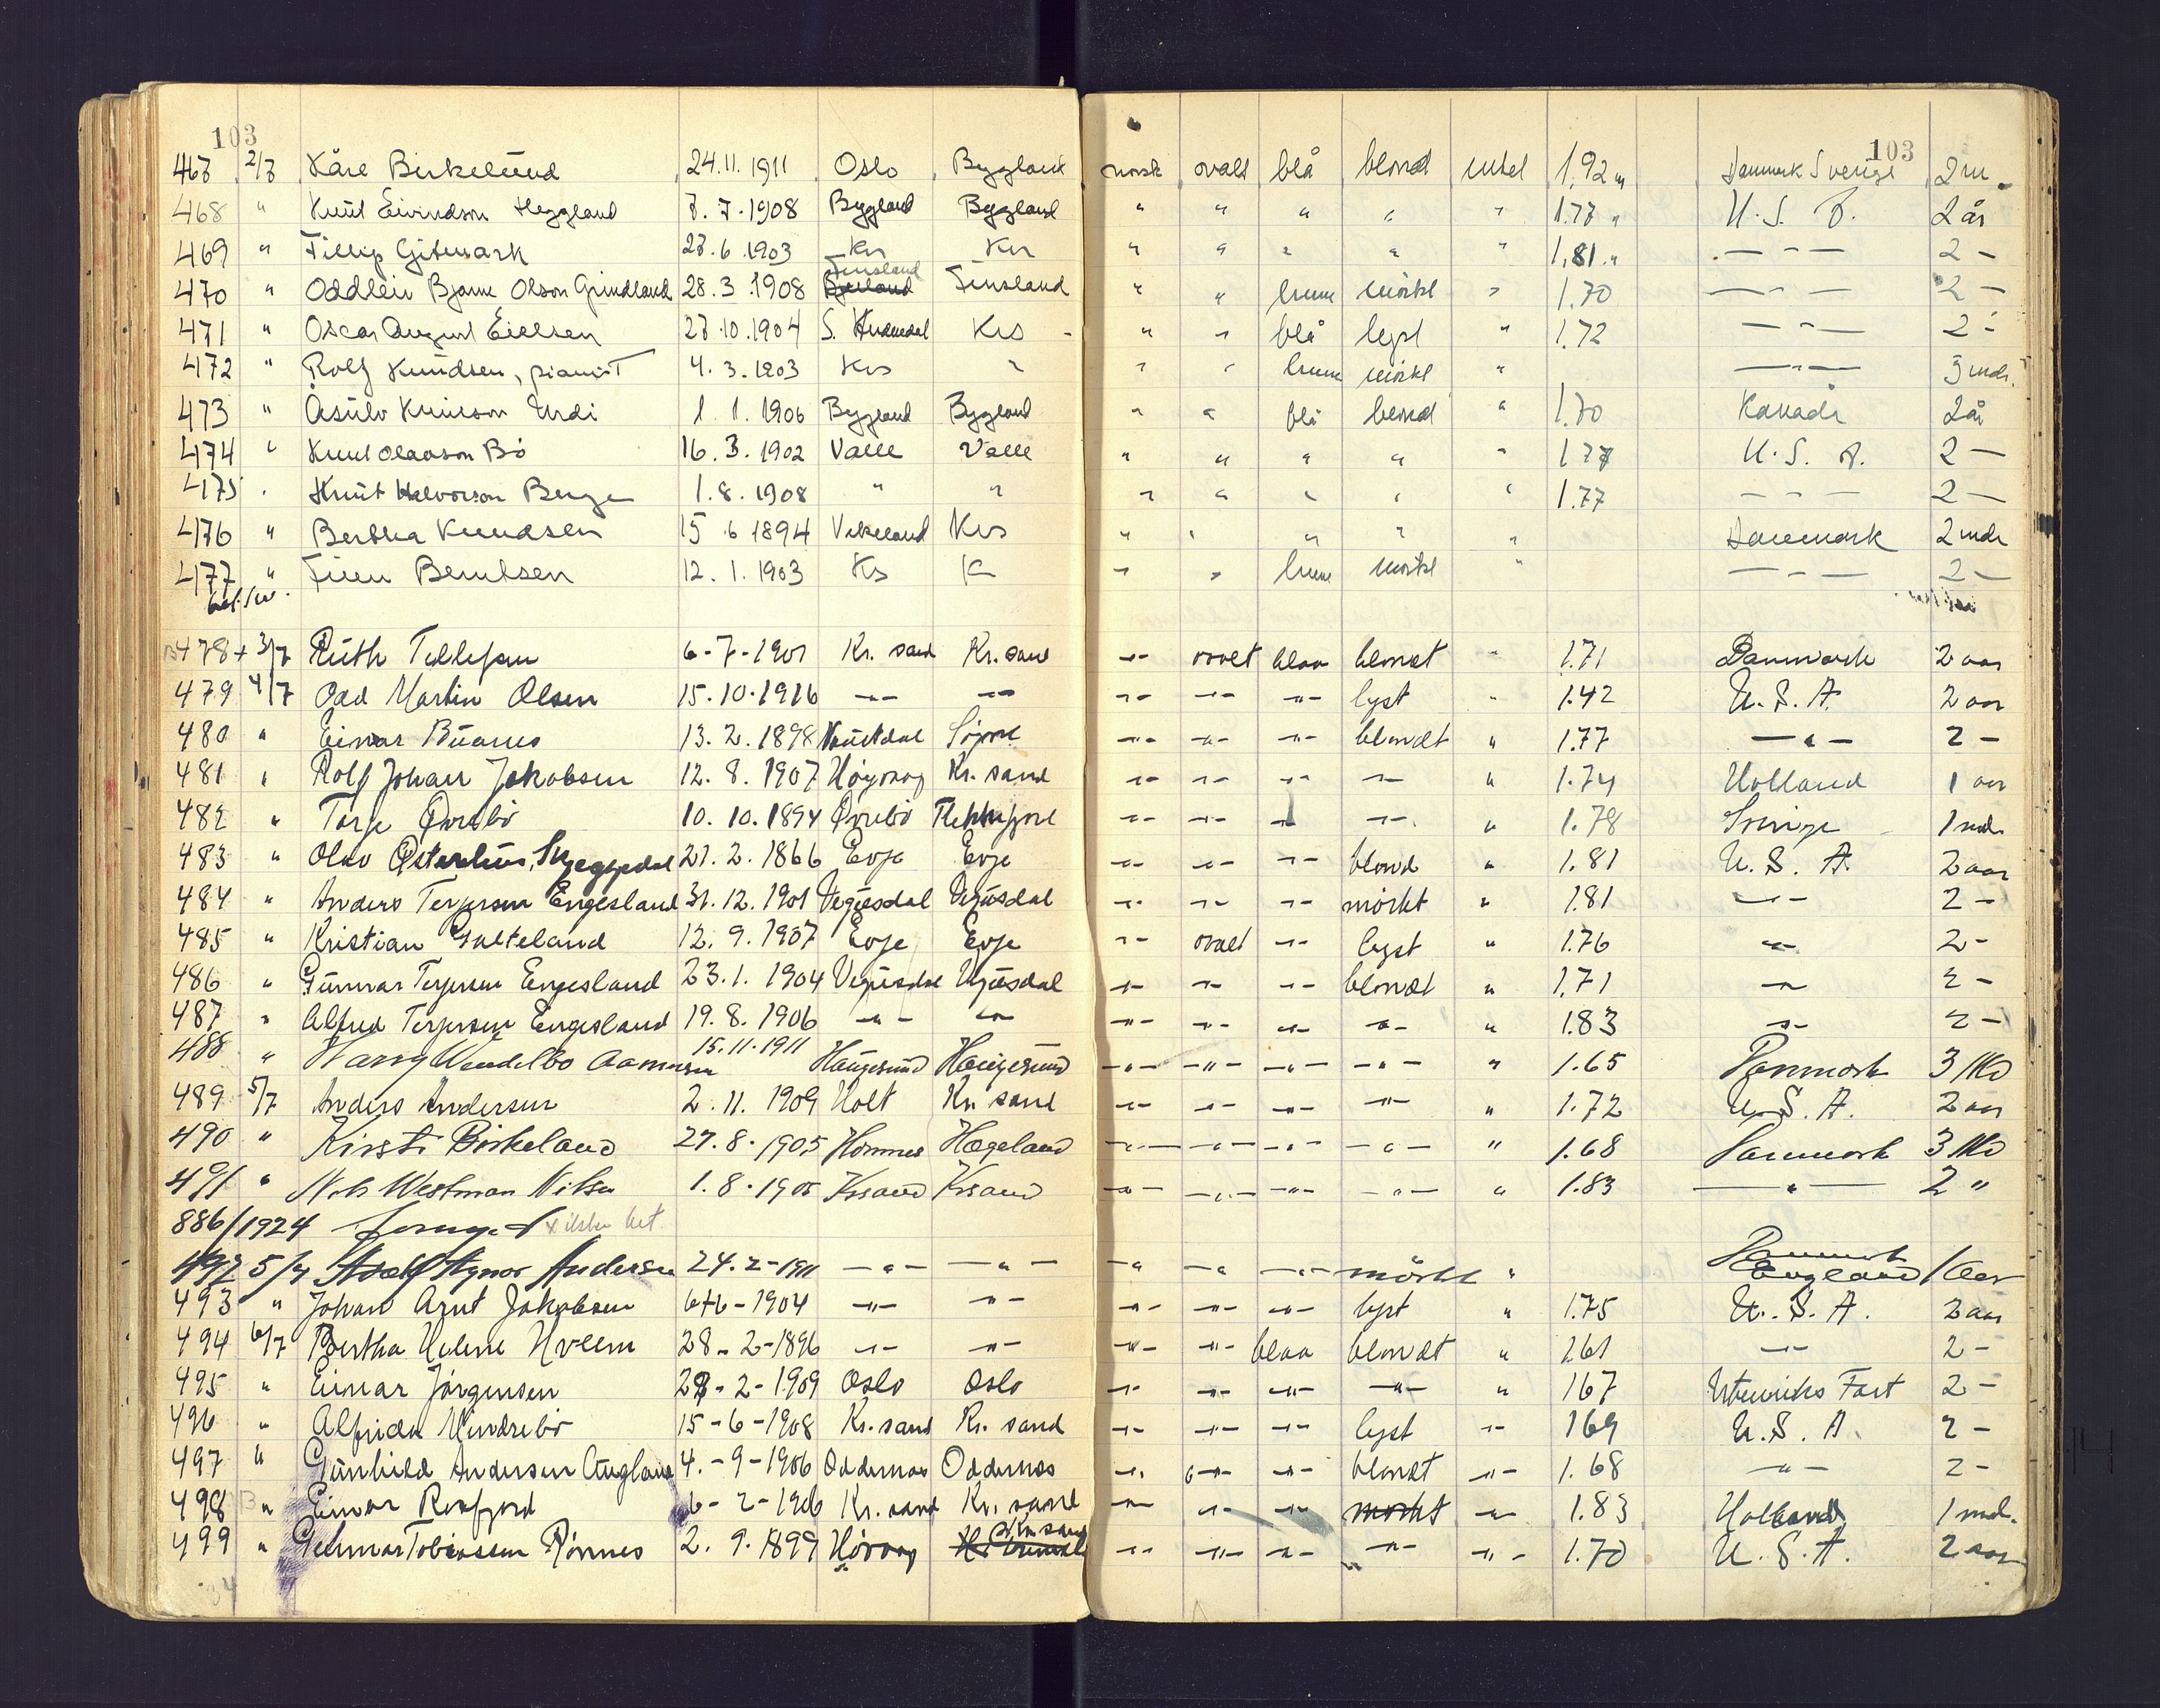 103 103
467 2/7 Kåre Birkelund 24.11.1911 Oslo Bygland norsk ovalt blå blond intet 1,92 m Danmark Sverige 2 m.
468 " Knut Eivindson Heggland 7.7.1908 Bygland Bygland " " " " " 1.77 " U.S.A. 2 år
469 " Fillip Gitmark 27.6.1903 Krs Krs " " " " " 1,81 " — " — 2 —
470 " Oddleiv Bjarne Olson Grindland 28.3.1908 Finsland Finsland " " brune mörkt " 1.70 — " — 2 —
471 " Oscar August Eielsen 27.10.1904 S. Krs " " blå lyst " 1.72 — " — 2 —
472 " Rolf Knudsen, pianist 4.3.1903 Krs " " " brune mörkt " — " — 3 mdr.
473 " Åsulv Knutson Urdi 1.1.1906 Bygland Bygland " " blå blond " 1.70 Kanada 2 år
474 " Knut Olavson Bö 16.3.1902 Valle Valle " " " " " 1.77 U.S.A. 2 —
475 " Knut Halvorson Berge 1.8.1908 " " " " " " " 1.77 — " — 2 —
476 " Bertha Knudsen 15.6.1894 Vikeland Krs " " " " " Danmark 2 mdr
477 " Finn Berntsen 12.1.1903 Ks K " " brune mörkt " — " — 2 —
478 + 3/7 Ruth Tellefsen 6-7-1901 Kr. sand Kr. sand -"- ovalt blaa blondt " 1.71 Danmark 2 aar
479 4/7 Odd Martin Olsen 15.10.1916 -"- -"- -"- -"- -"- lyst " 1.42 U.S.A. 2 aar
480 " Einar Buanes 13.2.1898 Naustdal Søgne -"- -"- -"- blondt " 1.77 — " — 2 -
481 " Rolf Johan Jakobsen 12.8.1907 Høyvaag Kr. sand -"- -"- -"- -"- " 1.74 Holland 1 aar
482 " Tarje Øvrebö 10.10.1894 Øvrebö Flekkefjord -"- -"- -"- -"- " 1.78 Sverige 1 md.
483 " Olav 21.2.1866 Evje Evje -"- -"- -"- blond " 1.81 U.S.A. 2 aar
484 " Anders Terjesen Engesland 31.12.1901 Vegusdal Vegusdal -"- -"- -"- mörkt " 1.81 -"- 2 -
485 " Kristian Galteland 12.9.1907 Evje Evje -"- ovalt -"- lyst " 1.76 -"- 2 -
486 " Gunnar Terjesen Engesland 23.1.1904 Vegusdal Vegusdal -"- -"- -"- blondt " 1.71 -"- 2 -
487 " Alfred Terjesen Engesland 19.8.1906 -"- -"- -"- -"- -"- -"- " 1.83 -"- 2 -
488 " Harry Wendelbo Aamnesen 15.11.1911 Haugesund Haugesund -"- -"- -"- -"- " 1.65 Danmark 3 Md
489 5/7 Anders Andersen 2.11.1909 Holt Kr. sand -"- -"- -"- -"- " 1.72 U.S.A. 2 aar
490 " Kirsti Birkeland 27.8.1905 Hornnes Hægeland -"- -"- -"- -"- " 1.68 Danmark 3 Md
491 " Nils Westman Nilsen 1.8.1905 Krsand Krsand -"- -"- -"- -"- " 1.83 — " — 2 "
886/1924 Fornyet
492 5/7 Adolf Agnor Andersen 24.2-1911 — " — — " — -"- -"- -"- mörkt " Danmark England 1 Aar
493 " Johan Arnt Jakobsen 6-6-1904 -"- -"- -"- -"- -"- lyst " 1.75 U.S.A. 2 aar
494 6/7 Bertha Helene Hveem 28-2-1896 -"- -"- -"- -"- blaa blondt " 1.61 -"- 2 -
495 " Einar Jörgensen 28-2-1909 Oslo Oslo -"- -"- -"- -"- " 167 Utenriks Fart 2 -
496 " Alfrida Windrebö 15-6-1908 Kr. sand Kr. sand -"- -"- -"- lyst -"- 169 U.S.A. 2 -
497 " Gunhild Andersen Augland 4.-9-1906 Oddernes Oddernes -"- -"- -"- blondt -"- 1.68 -"- 2 -
498 " Einar Rosfjord 6-2-1906 Kr. sand Kr. sand -"- -"- -"- mörkt -"- 1.83 Holland 1 md.
499 " Gelmar Tobiassen Rönnes 2.9.1899 -"- -"- -"- -"- -"- 1.70 U.S.A. 2 aar